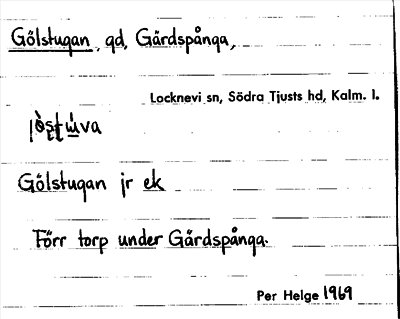 Gölstugan, gd, Gårdspånga,
Locknevi sn, Södra Tjusts hd, Kalm. l.
Gölstugan jr ek
Förr torp under Gårdspånga.
Per Helge 1969